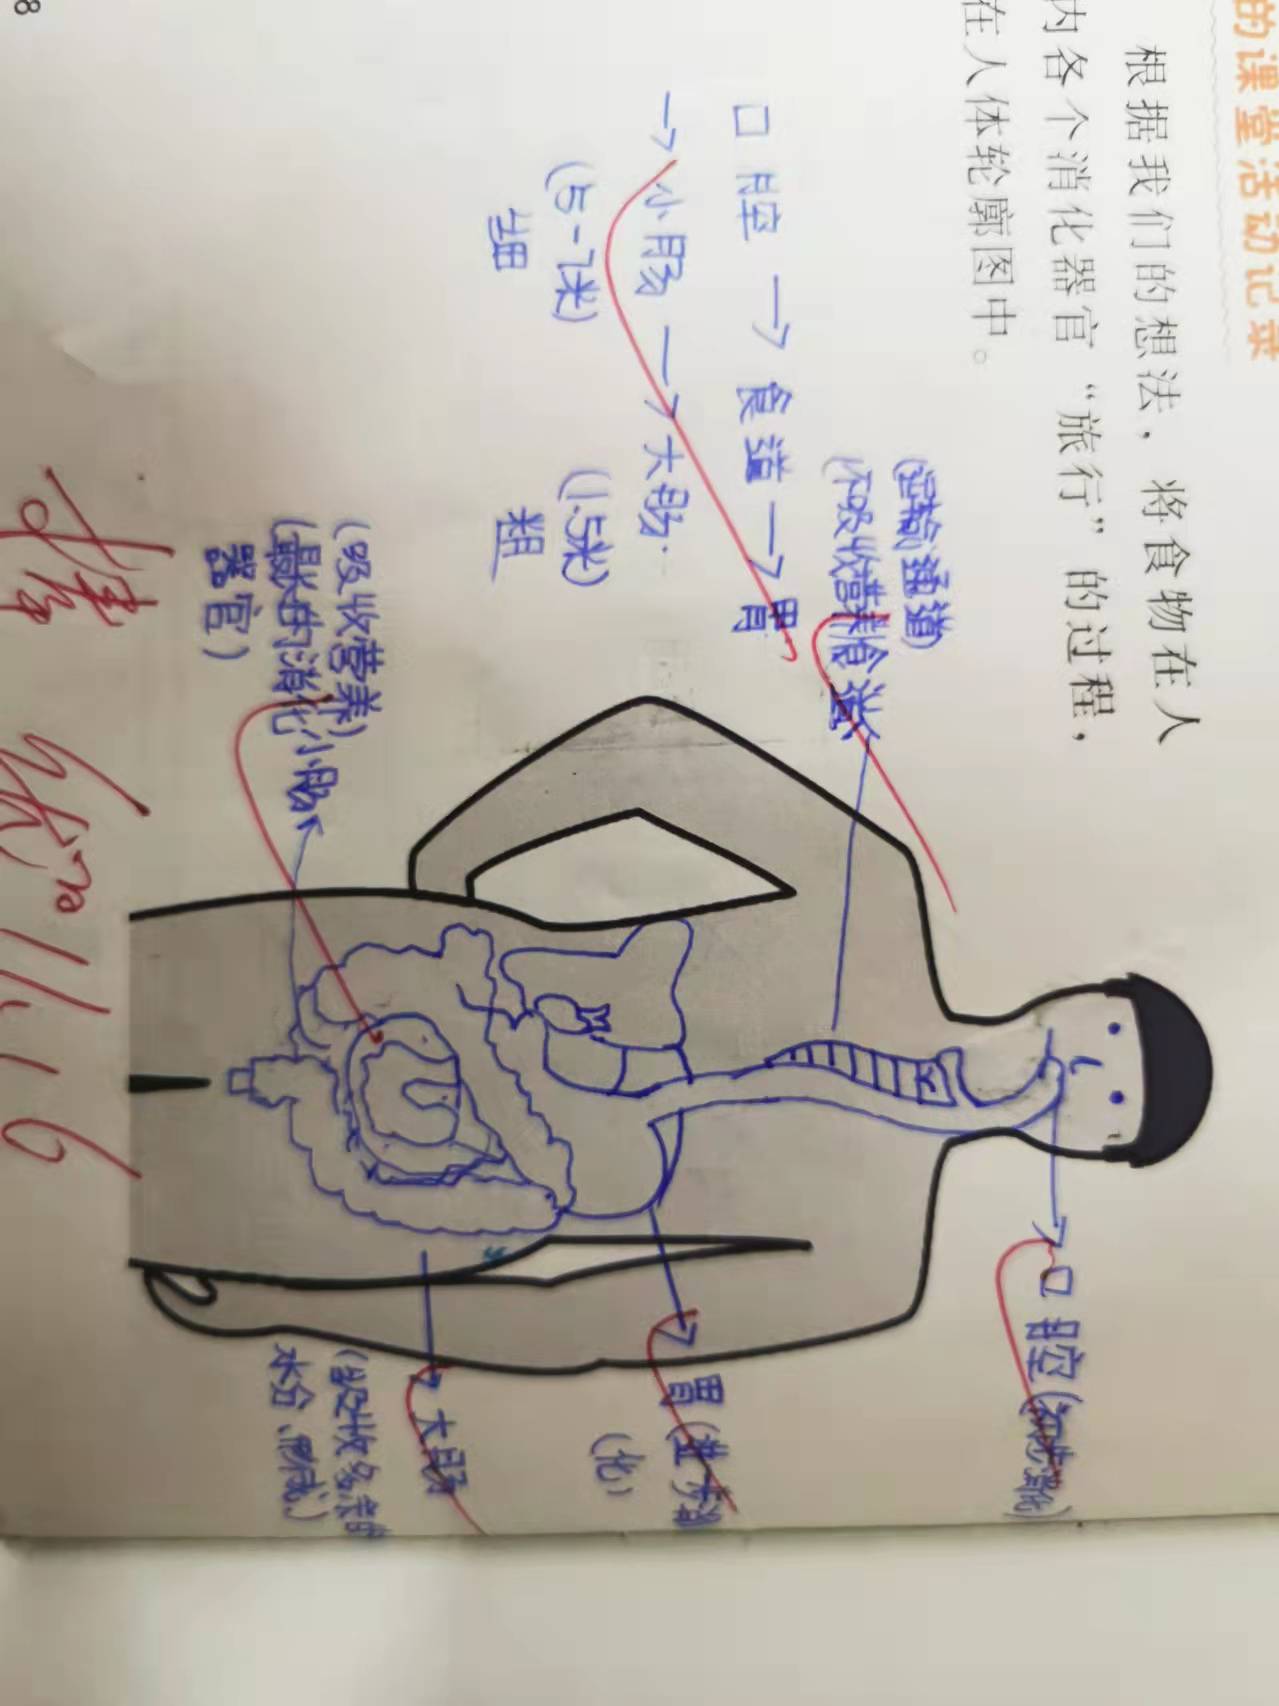 的课堂活动记录
根据我们的想法，将食物在人
内各个消化器官“旅行”的过程，
在人体轮廓图中。
口腔→食道→胃
→小肠→大肠
(5-7米) (1.5米)
细 粗
(运输通道)
(不吸收营养)食道
口腔(初步消化)
胃(进一步消
化)
大肠
(吸收多余的
水分、形成
(吸收营养)
(最长的消化 小肠
器官)
11.16
8